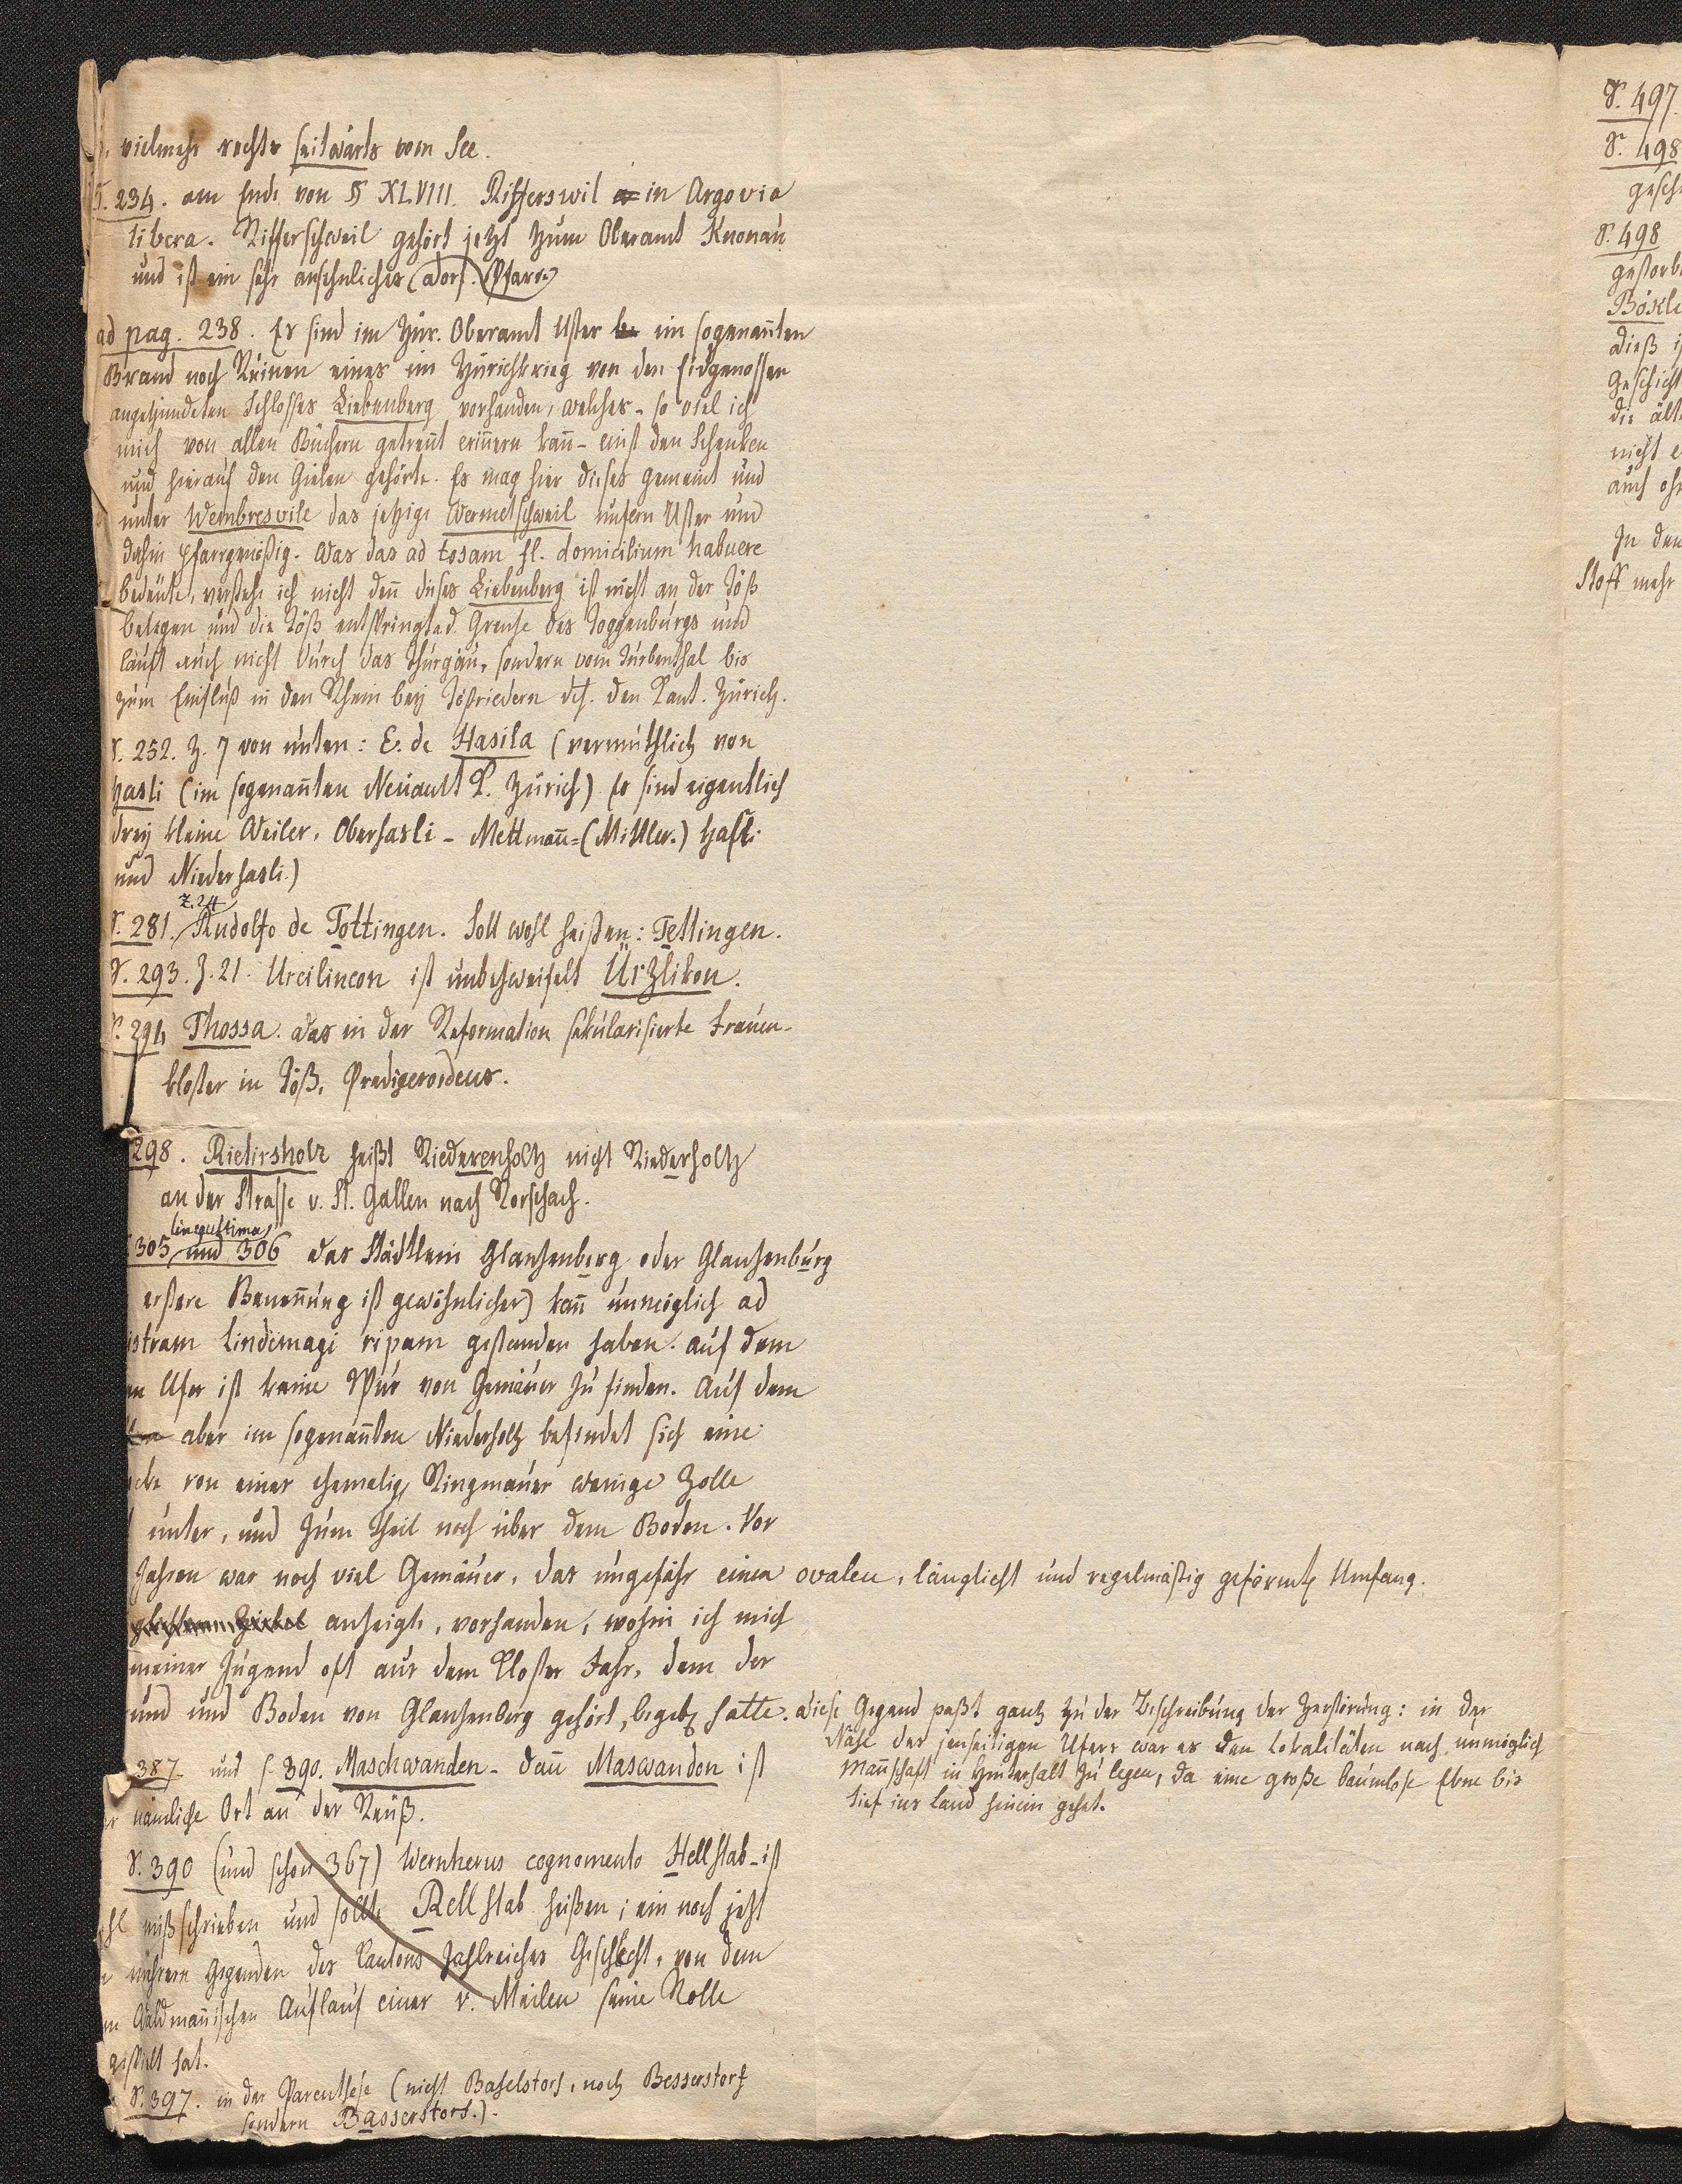 vielmehr rechts seitwärts vom See.
S. 234. am Ende von § XLVIII. Rifferswil in Argovia
libera. Rifferschweil gehört jetzt zum Oberamt Knonau
und ist ein sehr ansehnliches (Dorf. Pfarr-)
ad pag. 238. Es sind im Zür. Oberamt Uster im sogenan̄ten
Brand noch Ruinen eines im Zürichkrieg von den Eidgenossen
angezündeten Schlosses Liebenberg vorhanden, welches - so viel ich
mich von allen Büchern getren̄t erin̄ern kan̄ - einst den Schenken
und hierauf den Gielen gehörte. Es mag hier dieses gemeint und
unter Wembresvile das jetzige Wermetschweil unfern Uster und
dahin pfarrgenößig. Was das ad tosam fl. domicilium habuere
bedeute, verstehe ich nicht den̄ dieses Liebenberg ist nicht an der Töß
belegen und die Töß entspringt a d Grenze des Toggenburgs und
läuft auch nicht durch das Thurgäu, sondern vom Turbenthal bis
zum Einfluß in den Rhein bey Tößriedern dch. den Cant. Zürich.
S. 252. Z. 7 von unten: E. de Hasila (vermuthlich von
Hasli (im sogenan̄ten Neuamt C. Zürich) Es sind eigentlich
drey kleine Weiler, Oberhasli - Mettman̄-(Mittler.) Hasli
und Niederhasli.)
Z. 24
S. 281. Rudolfo de Tottingen. Soll wohl heißen: Tettingen.
S. 293. Z. 21. Urcilincon ist unbezweifelt Ürzlikon.
S. 294 Thossa. das in der Reformation sekularisierte Frauen-
kloster in Töß, Predigerordens.
298. Rietirsholz heißt Riederenholtz nicht Riederholtz
an der Strasse v. St. Gallen nach Rorschach.
linea ultima
305 und 306 das Städtlein Glanzenberg oder Glanzenburg
erstere Benen̄ung ist gewöhnlicher) kan̄ unmöglich ad
istram Lindimagi ripam gestanden haben. auf dem
en Ufer ist keine Spur von Gemäuer zu finden. Auf dem
aber im sogenan̄ten Niederholtz befindet sich eine
von einer ehemalig Ringmauer wenige Zolle
unter, und zum Theil noch über dem Boden. Vor
Jahren war noch viel Gemäuer, das ungefähr einen ovalen, länglicht und regelmäßig geformt Umfang
anzeigte, vorhanden, wohin ich mich
meiner Jugend oft aus dem Kloster Fahr, dem der
und und Boden von Glanzenberg gehört, begeb hatte. diese Gegend paßt gantz zu der Beschreibung der Zerstörung: in der
Nähe des jenseitigen Ufers war es den Lokalitäten nach unmöglich
Man̄schaft in Hinterhalt zu legen, da eine große baumlose Ebne bis
tief ins Land hinein gehet.
387 und S. 390. Maschwanden - dan̄ Maswandon ist
er nämliche Ort an der Reuß.
S. 390 (und schon 367) Wernherus cognomento Hellstab - ist
ohl mißschrieben und sollte Rellstab heißen; ein noch jetzt
mehrern Gegenden des Cantons zahlreiches Geschlecht, von dem
m Waldman̄ischen Auflauf einer v. Meilen seine Rolle
gespielt hat.
S. 397. in der Parenthese (nicht Baselstorf, noch Besserstorf
sondern Basserstorf.).
S. 497.
S. 498
gesch
S. 498
gestorb
Böskl
dieß i
Geschicht
die ält
nicht e
auch oh
In den
Stoff mehr